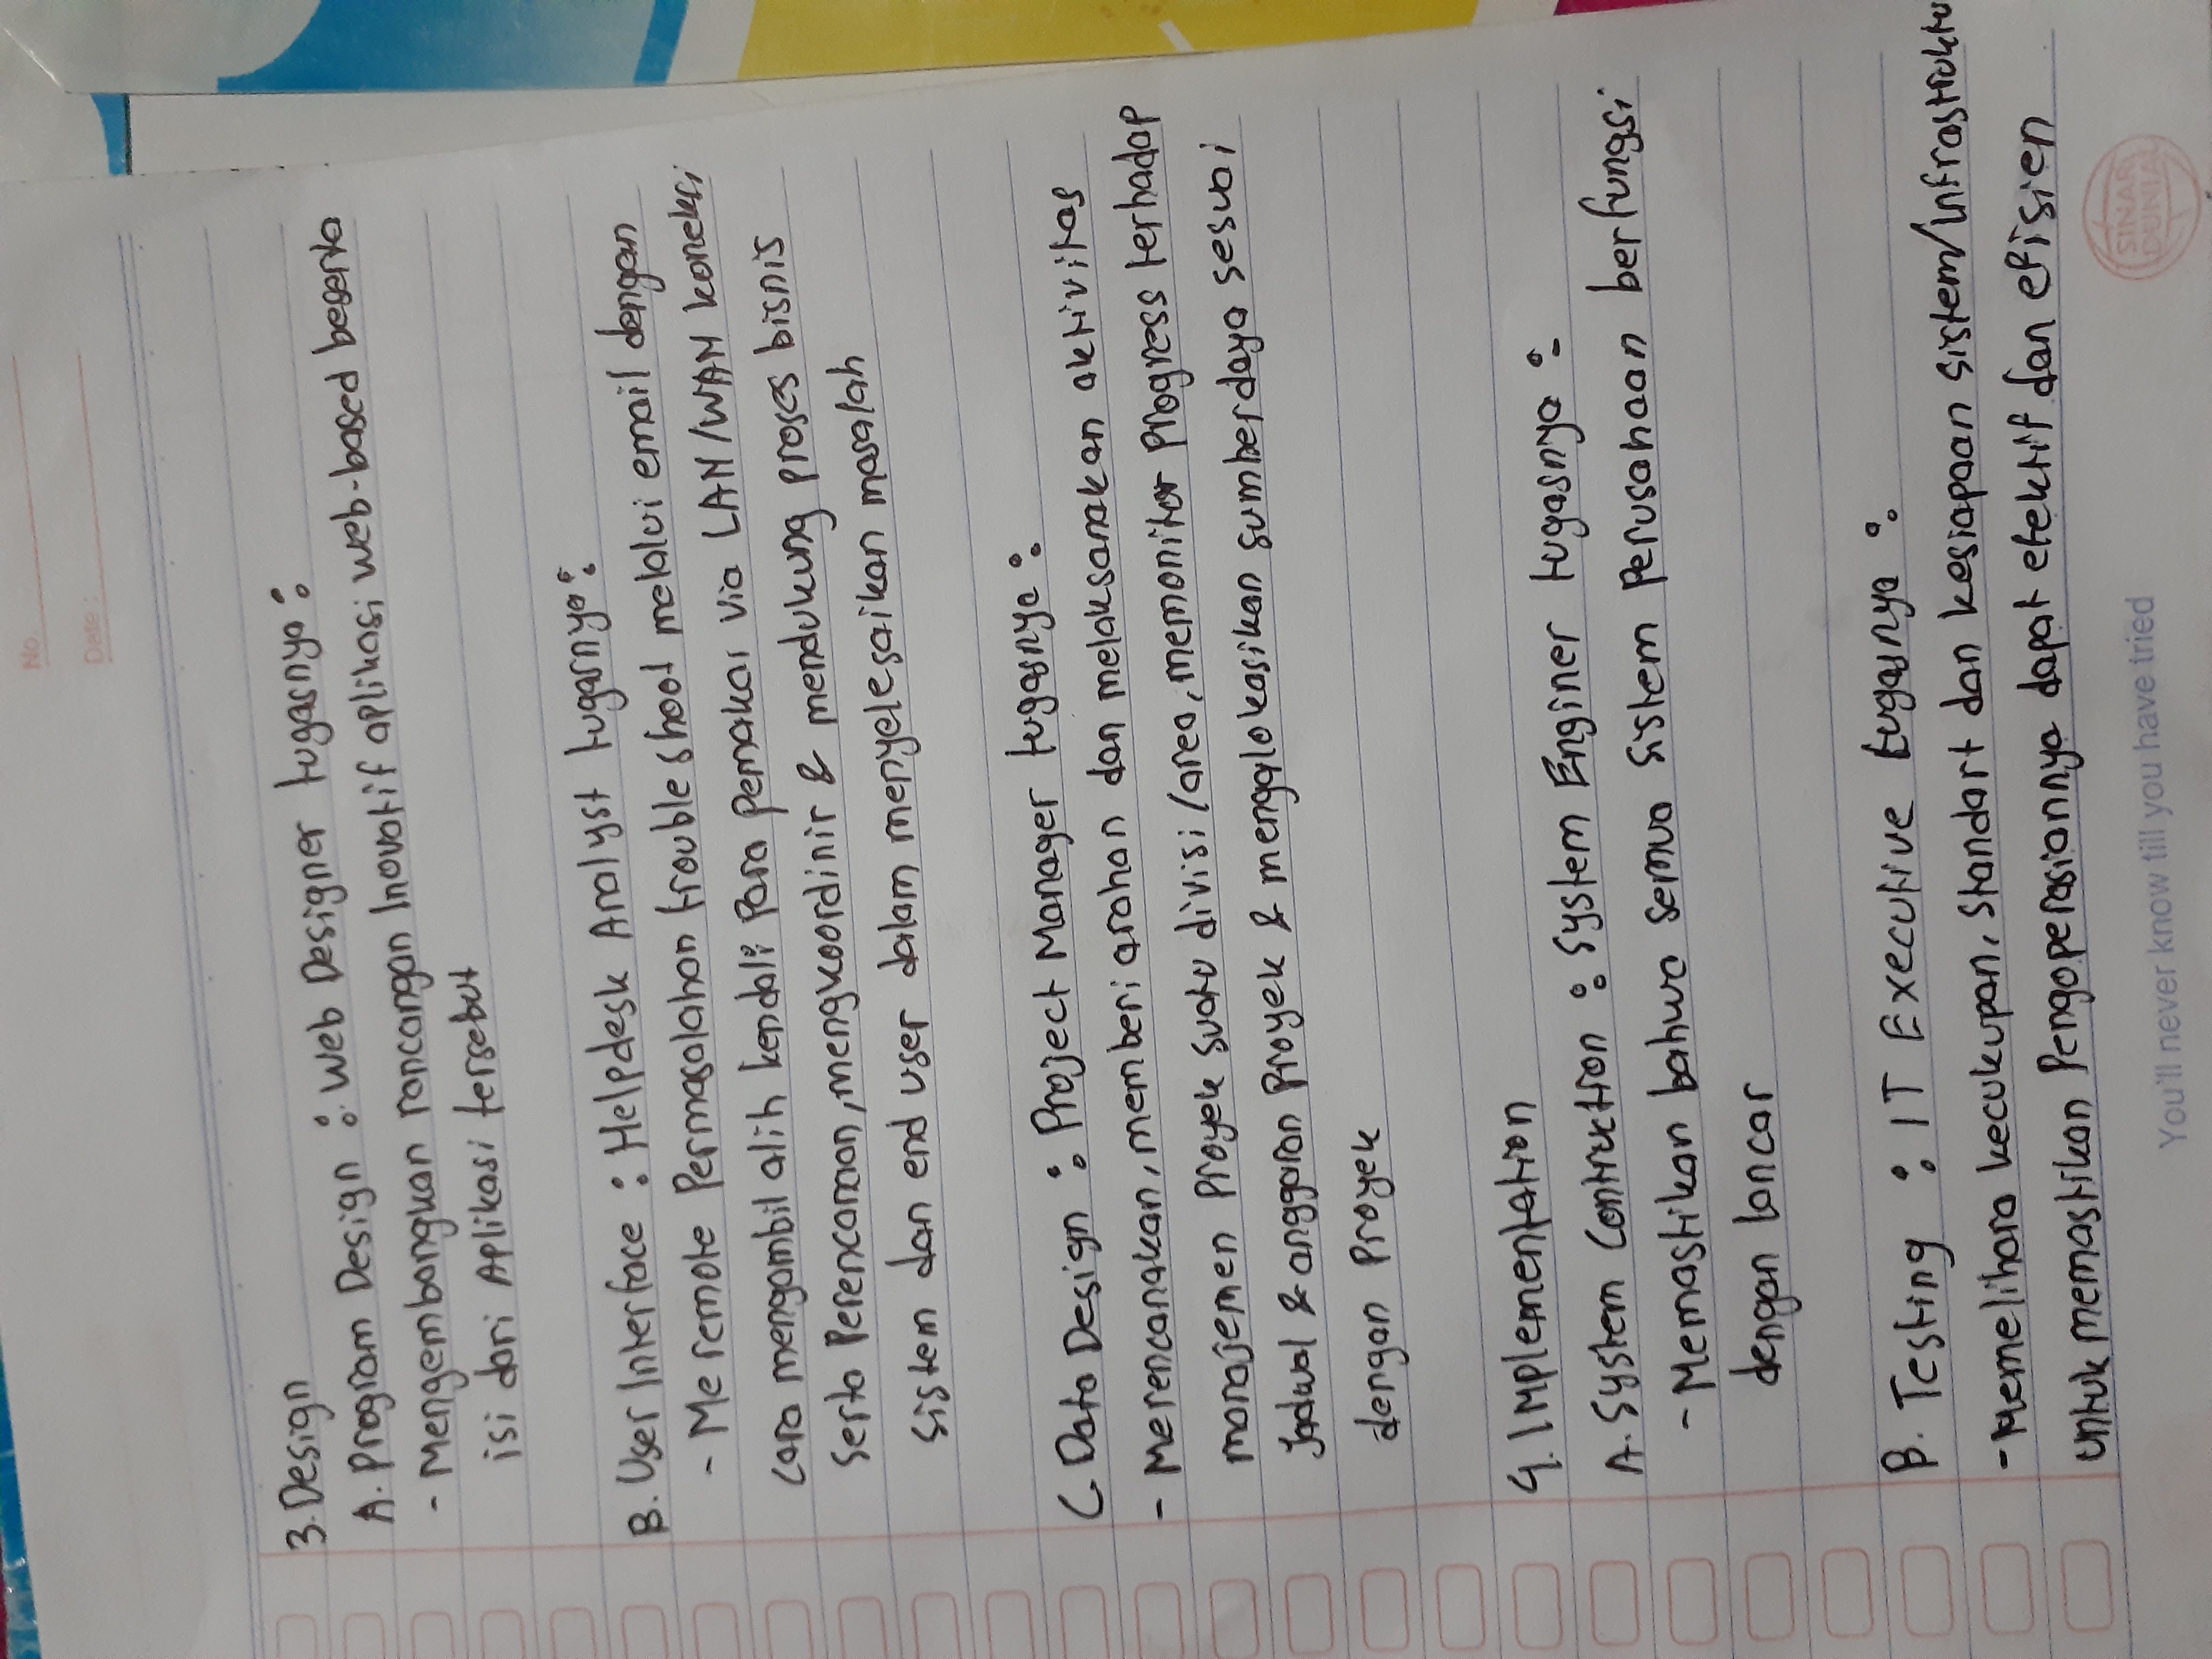 No.
Date :
3. Design
A. Program Design : Web Designer tugasnya :
- Mengembangkan rancangan Inovatif aplikasi web-based beserta
isi dari Aplikasi tersebut
B. User Interface : Helpdesk Analyst tugasnya :
- Me remote Permasalahan troubleshoot melalui email dengan
cara mengambil alih kendali para pemakai via LAN/WAN koneksi
serta Perencanaan, mengkoordinir & mendukung proses bisnis
sistem dan end user dalam menyelesaikan masalah
C. Data Design : Project Manager tugasnya :
- Merencanakan, memberi arahan dan melaksanakan aktivitas
manajemen Proyek suatu divisi/area, memonitor Progress terhadap
Jadwal & anggaran Proyek & mengalokasikan sumberdaya sesuai
dengan Proyek
4. Implementation
A. System Contruction : System Enginer tugasnya :
- Memastikan bahwa semua sistem Perusahaan berfungsi
dengan lancar
B. Testing : IT Executive tugasnya :
- Memelihara kecukupan, Standart dan kesiapaan sistem/Infrastruktu
untuk memastikan Pengoperasiannya dapat efektif dan efisien
You'll never know till you have tried
SINAR
DUNIA